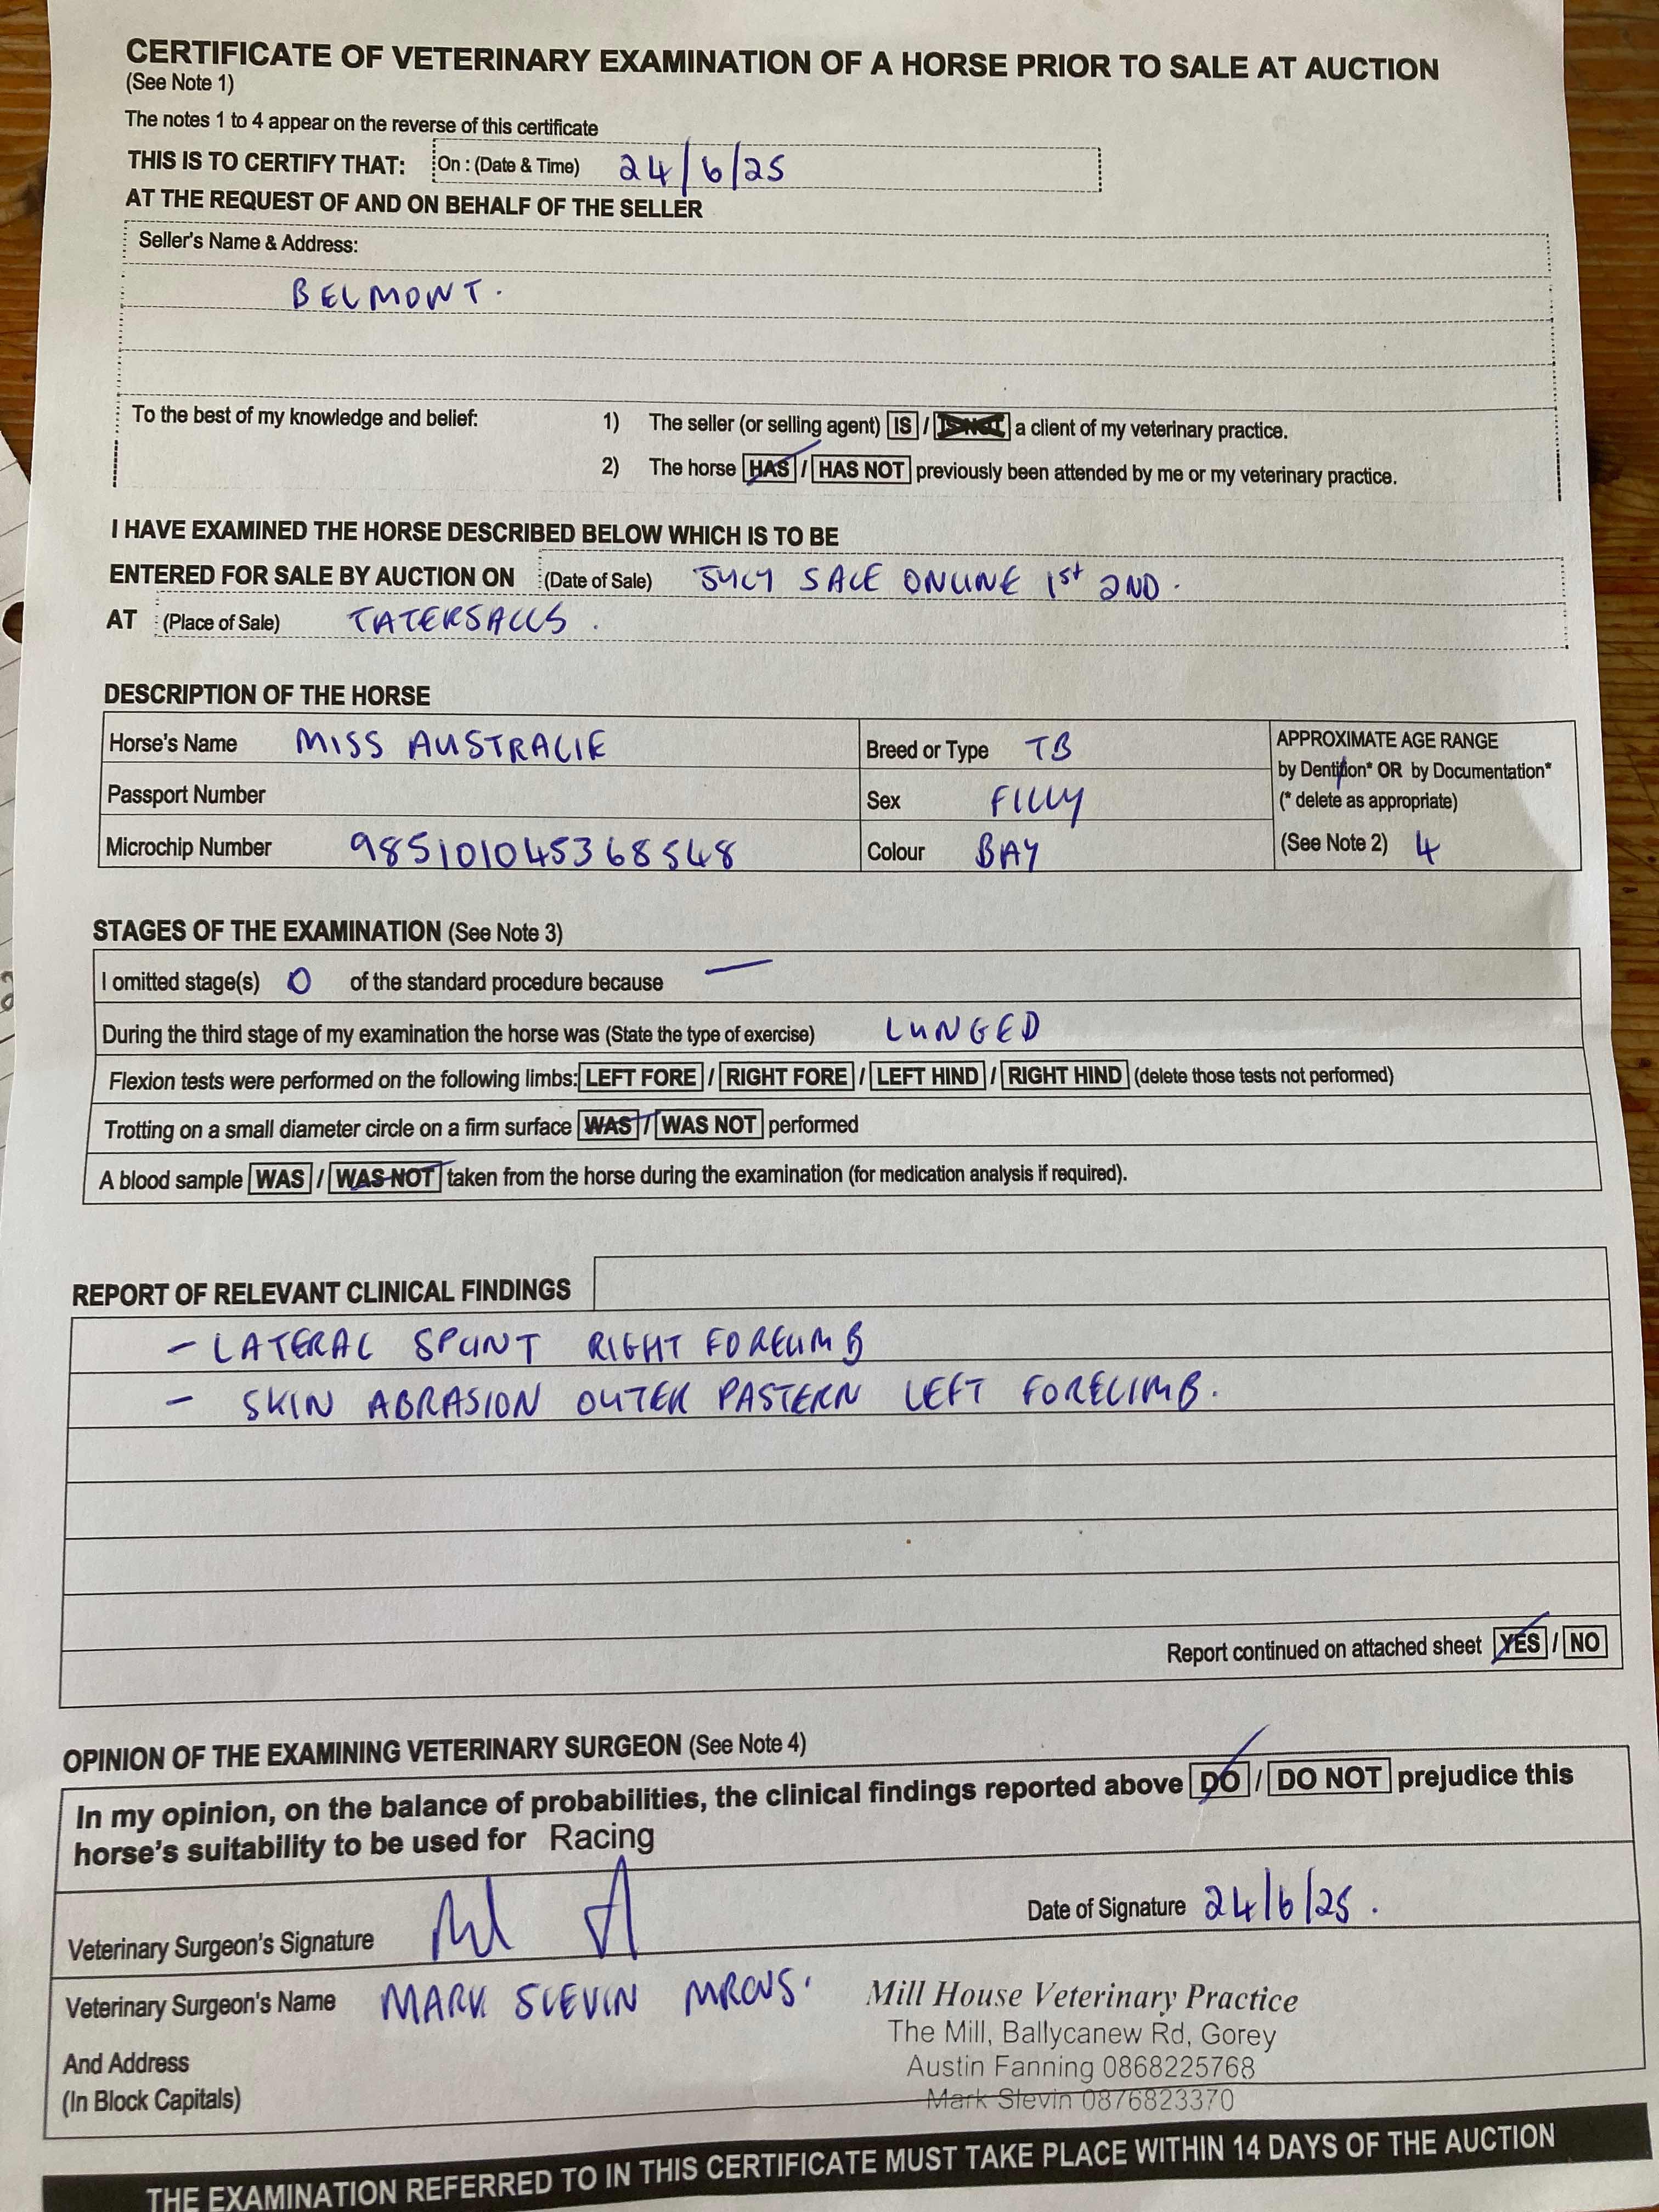 CERTIFICATE OF VETERINARY EXAMINATION OF A HORSE PRIOR TO SALE AT AUCTION
(See Note 1)
The notes 1 to 4 appear on the reverse of this certificate
THIS IS TO CERTIFY THAT: On : (Date & Time) 24/6/25
AT THE REQUEST OF AND ON BEHALF OF THE SELLER
Seller's Name & Address:
BELMONT.
To the best of my knowledge and belief: 1) The seller (or selling agent) IS / IS NOT a client of my veterinary practice.
2) The horse HAS / HAS NOT previously been attended by me or my veterinary practice.
I HAVE EXAMINED THE HORSE DESCRIBED BELOW WHICH IS TO BE
ENTERED FOR SALE BY AUCTION ON (Date of Sale) JULY SALE ONLINE 1st 2ND.
AT (Place of Sale) TATERSALLS.
DESCRIPTION OF THE HORSE
Horse's Name MISS AUSTRALIE
Passport Number
Microchip Number 985101045368548
Breed or Type TB
Sex FILLY
Colour BAY
APPROXIMATE AGE RANGE
by Dentition* OR by Documentation*
(* delete as appropriate)
(See Note 2) 4
STAGES OF THE EXAMINATION (See Note 3)
I omitted stage(s) 0 of the standard procedure because —
During the third stage of my examination the horse was (State the type of exercise) LUNGED
Flexion tests were performed on the following limbs: LEFT FORE / RIGHT FORE / LEFT HIND / RIGHT HIND (delete those tests not performed)
Trotting on a small diameter circle on a firm surface WAS / WAS NOT performed
A blood sample WAS / WAS NOT taken from the horse during the examination (for medication analysis if required).
REPORT OF RELEVANT CLINICAL FINDINGS
- LATERAL SPLINT RIGHT FORELIMB
- SKIN ABRASION OUTER PASTERN LEFT FORELIMB.
Report continued on attached sheet YES / NO
OPINION OF THE EXAMINING VETERINARY SURGEON (See Note 4)
In my opinion, on the balance of probabilities, the clinical findings reported above DO / DO NOT prejudice this
horse's suitability to be used for Racing
Veterinary Surgeon's Signature
Date of Signature 24/6/25.
Veterinary Surgeon's Name MARK SLEVIN MRCVS.
And Address
(In Block Capitals)
Mill House Veterinary Practice
The Mill, Ballycanew Rd, Gorey
Austin Fanning 0868225768
Mark Slevin 0876823370
THE EXAMINATION REFERRED TO IN THIS CERTIFICATE MUST TAKE PLACE WITHIN 14 DAYS OF THE AUCTION